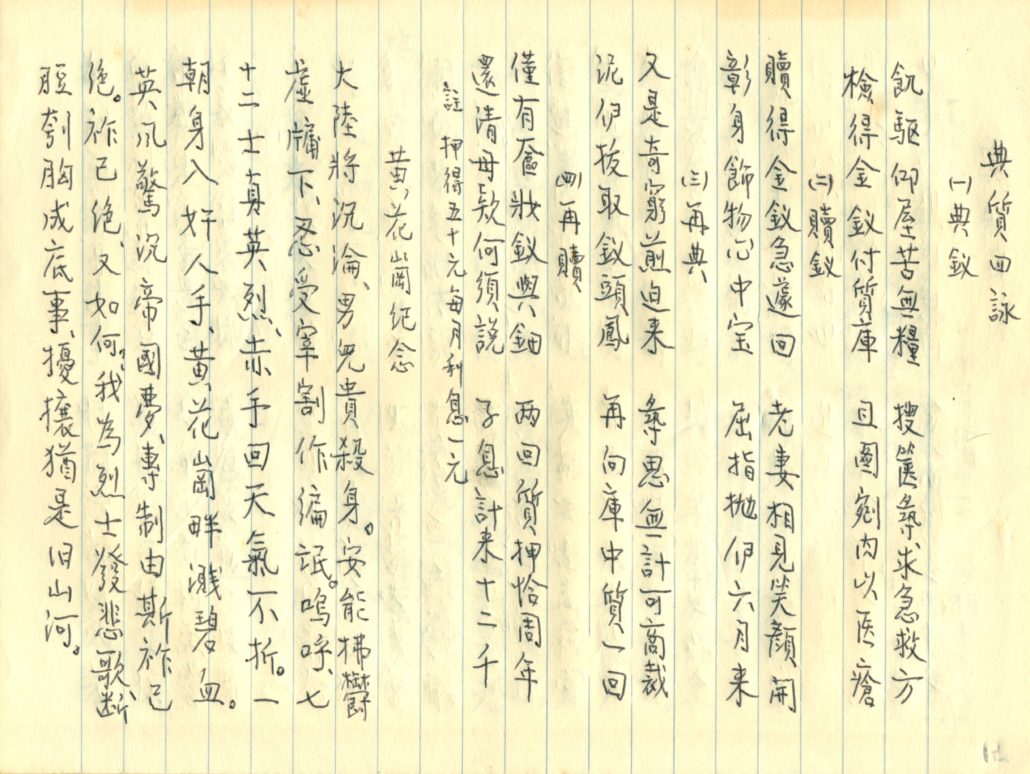 典質四詠
(一)典釵
飢驅仰屋苦無糧　搜篋藜求急救方
檢得金釵付質庫　且圖剜肉以医瘡
(二)贖釵
贖得金釵急遽回　老妻相見笑顏開
彰身飾物心中宝　屈指拋伊六月来
(三)再典
又是奇窮煎迫来　藜思無計可商裁
泥伊拔取釵頭鳳　再向庫中質一回
(四)再贖
僅有奩妝釵與鈿　両回質押恰周年
還清毋欵何須説　子息計来十二千
註 押得五十元每月利息一元
黄花崗紀念
大陸將沉淪、男兒貴殺身。安能拂欝
虛牖下、忍受宰割作编氓。嗚呼、七
十二士真英烈、赤手回天氣不折。一
朝身入奸人手、黄花崗畔濺碧血。
英風驚沉帝國夢、專制由斯祚已
绝。祚已绝、又如何。我為烈士發悲歌、断
脰刳胸成底事、擾攘猶是旧山河。